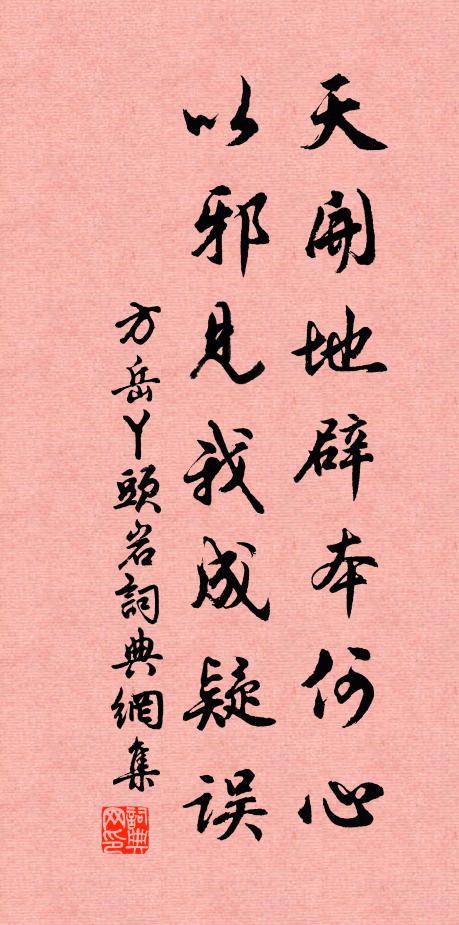 天開地辟本何心
以邪見我成疑误
方岳丫頭岩詞典網集
詞典网印